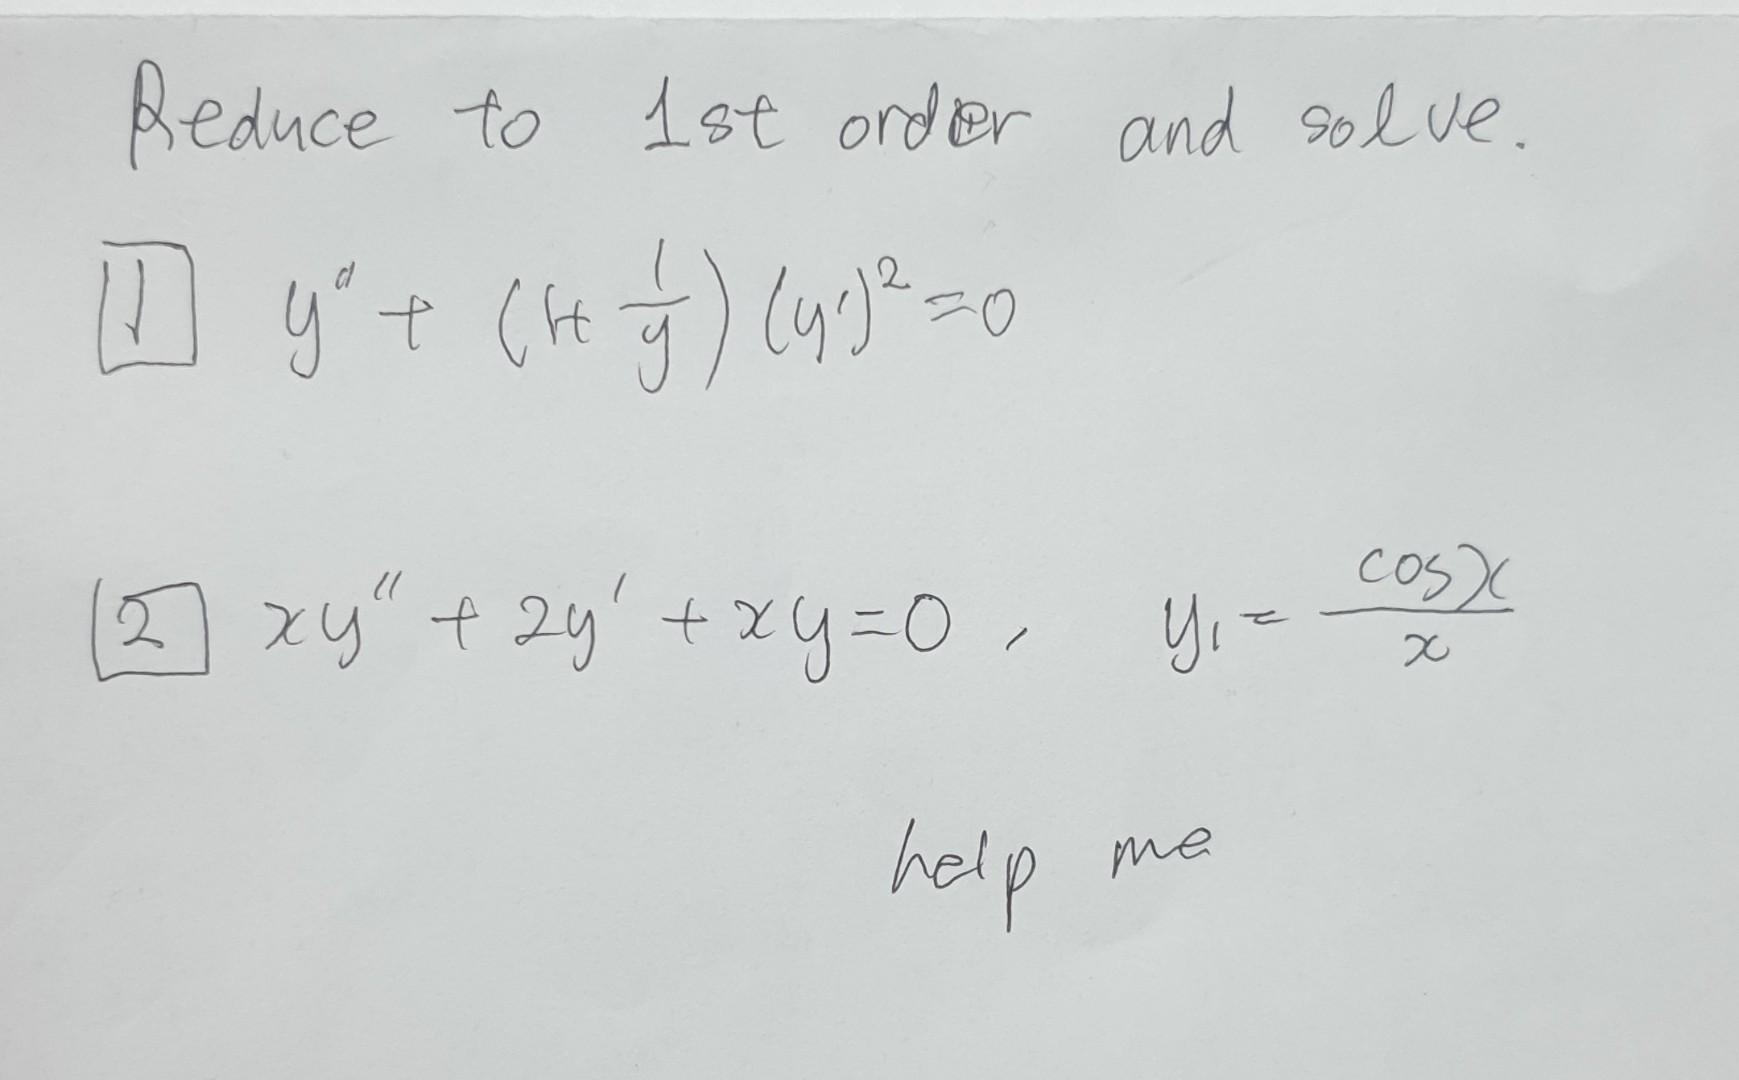 Reduce to 1st order and solve.
1 y" + (1+ 1/y) (y')² = 0
2 xy" + 2y' + xy = 0 , y₁ = cosx/x
help me